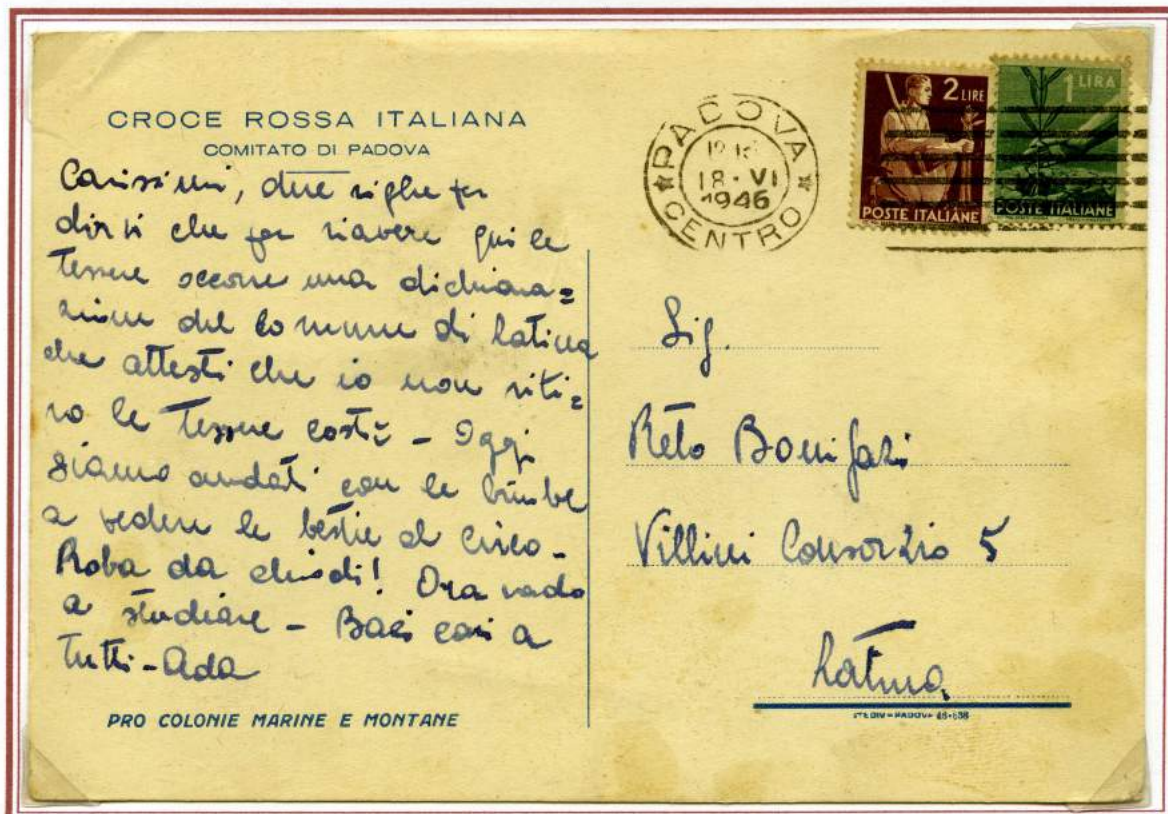 CROCE ROSSA ITALIANA
COMITATO DI PADOVA
Carissimi, due righe per
dirvi che per riavere qui le
tessere occorre una dichiara=
zione del Comune di Latina
che attesti che io non riti=
ro le tessere costì - Oggi
siamo andati con le bimbe
a vedere le bestie al circo -
Roba da chiodi! Ora vado
a studiare - Baci cari a
tutti - Ada
PRO COLONIE MARINE E MONTANE
PADOVA
18·VI
1946
CENTRO
2 LIRE
POSTE ITALIANE
1 LIRA
POSTE ITALIANE
Sig.
Reto Bonifazi
Villini Consorzio 5
Latina